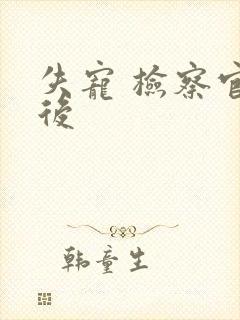 失寵 檢察官
後
韩童生